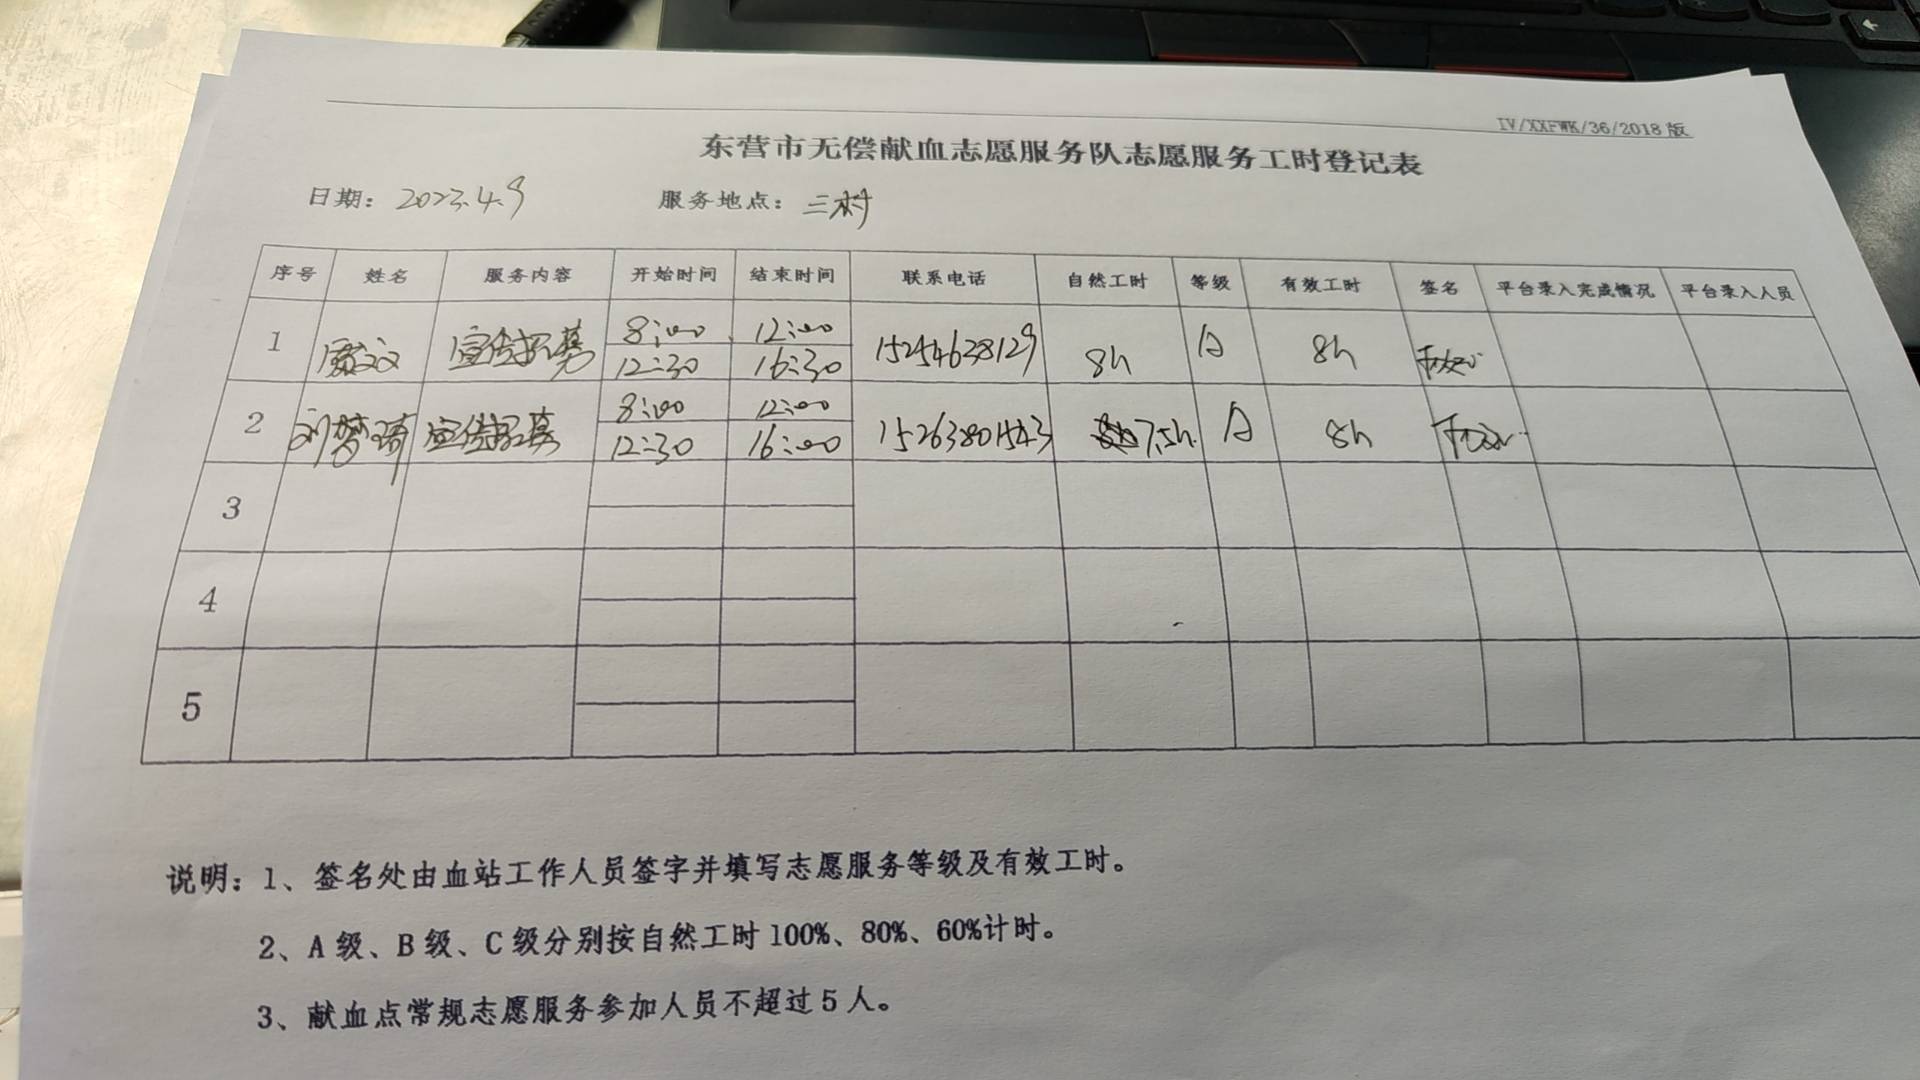 IV/XXFWK/36/2018版
东营市无偿献血志愿服务队志愿服务工时登记表
日期：2023.4.9 服务地点：三村
序号 姓名 服务内容 开始时间 结束时间 联系电话 自然工时 等级 有效工时 签名 平台录入完成情况 平台录入人员
1 宣传招募 8:00 12:00 15254638129 8h A 8h
12:30 16:30
2 刘梦琦 宣传招募 8:00 12:00 15263801543 7.5h A 8h
12:30 16:00
3
4
5
说明：1、签名处由血站工作人员签字并填写志愿服务等级及有效工时。
2、A级、B级、C级分别按自然工时100%、80%、60%计时。
3、献血点常规志愿服务参加人员不超过5人。